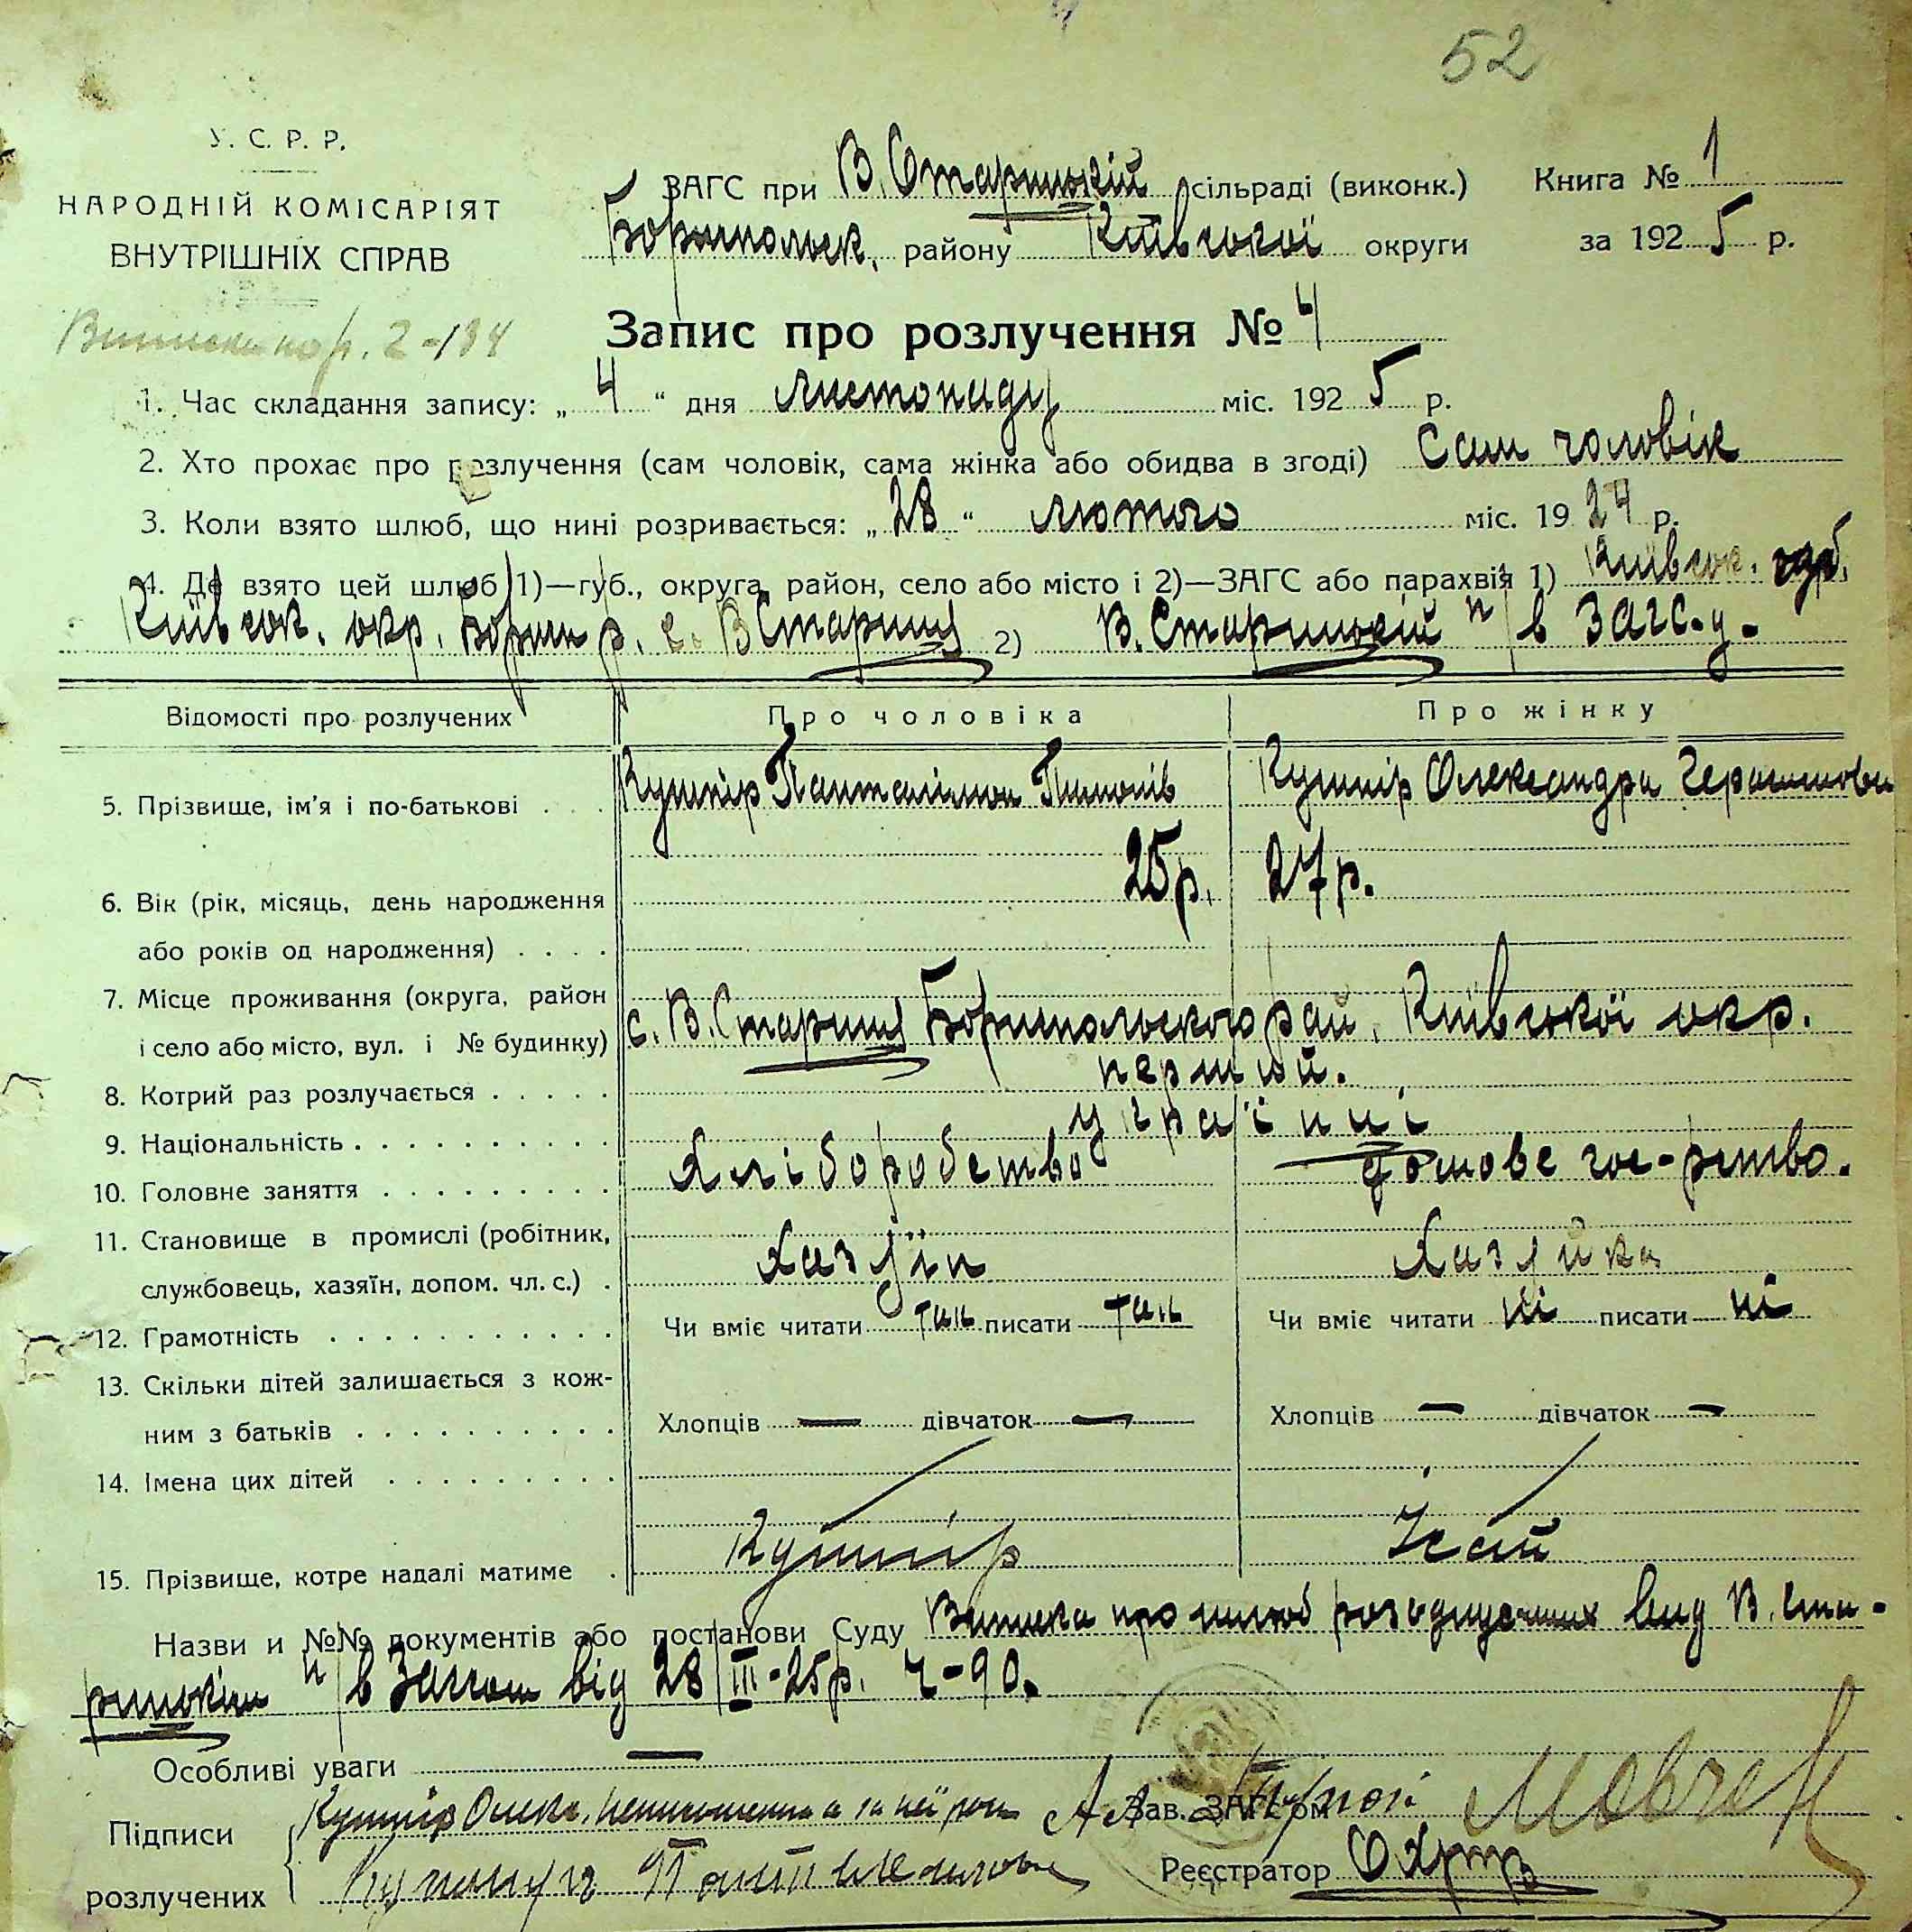 52
У. С. Р. Р.
НАРОДНІЙ КОМІСАРІЯТ
ВНУТРІШНІХ СПРАВ
ЗАГС при В. Старицькій сільраді (виконк.) Книга № 1
Бориспольск. району Київської округи за 1925 р.
2-134
Запис про розлучення № 4
1. Час складання запису: „ 4 “ дня листопаду міс. 1925 р.
2. Хто прохає про розлучення (сам чоловік, сама жінка або обидва в згоді) Сам чоловік
3. Коли взято шлюб, що нині розривається: „ 28 “ лютого міс. 1924 р.
4. Де взято цей шлюб 1)—губ., округа, район, село або місто і 2)—ЗАГС або парахвія 1) Київськ. губ.
Київськ. окр. Борисп р. с. В Стариця 2) В. Старицькій п/в ЗАГС-у.
Відомості про розлучених Про чоловіка Про жінку
5. Прізвище, ім'я і по-батькові . . . Кушнір Панталімон Пилипів Кушнір Олександра Герасимовн
25р. 27р.
6. Вік (рік, місяць, день народження
або років од народження) . . . .
7. Місце проживання (округа, район
і село або місто, вул. і № будинку) с. В. Стариця Бориспольского рай. Київської окр.
8. Котрий раз розлучається . . . . . перший.
9. Національність . . . . . . . . . . україниі
10. Головне заняття . . . . . . . . . Хліборобство домове гос-рство.
11. Становище в промислі (робітник,
службовець, хазяїн, допом. чл. с.) . Хазяїн Хазяйка
12. Грамотність . . . . . . . . . . . Чи вміє читати так писати так Чи вміє читати ні писати ні
13. Скільки дітей залишається з кож-
ним з батьків . . . . . . . . . . Хлопців — дівчаток — Хлопців — дівчаток —
14. Імена цих дітей . . . . . . . . .
15. Прізвище, котре надалі матиме . Кушнір
Назви и №№ документів або постанови Суду Виписка про шлюб вид В. Ста-
рицькім п/в Загсом від 28/III-25р. ч-90.
Особливі уваги —
Підписи Кушнір Олекс. неписьменна а за неї рос. Зав. ЗАГС'ом Мовчан
розлучених Реєстратор